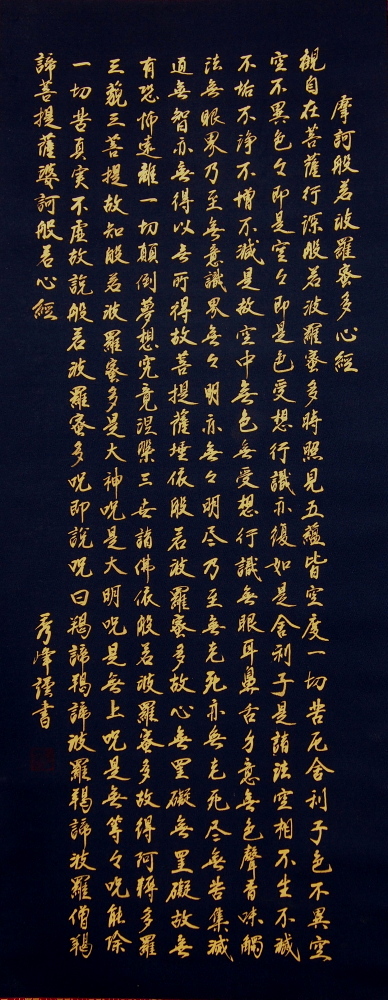 摩訶般若波羅蜜多心経
観自在菩薩行深般若波羅蜜多時照見五蘊皆空度一切苦厄舎利子色不異空
空不異色々即是空々即是色受想行識亦復如是舎利子是諸法空相不生不滅
不垢不浄不増不減是故空中無色無受想行識無眼耳鼻舌身意無色聲香味觸
法無眼界乃至無意識界無々明亦無々明尽乃至無老死亦無老死尽無苦集滅
道無智亦無得以無所得故菩提薩埵依般若波羅蜜多故心無罣礙無罣礙故無
有恐怖遠離一切顛倒夢想究竟涅槃三世諸佛依般若波羅蜜多故得阿耨多羅
三藐三菩提故知般若波羅蜜多是大神呪是大明呪是無上呪是無等々呪能除
一切苦真実不虚故説般若波羅蜜多呪即説呪曰羯諦羯諦波羅羯諦波羅僧羯
諦菩提薩婆訶般若心經
秀峰謹書